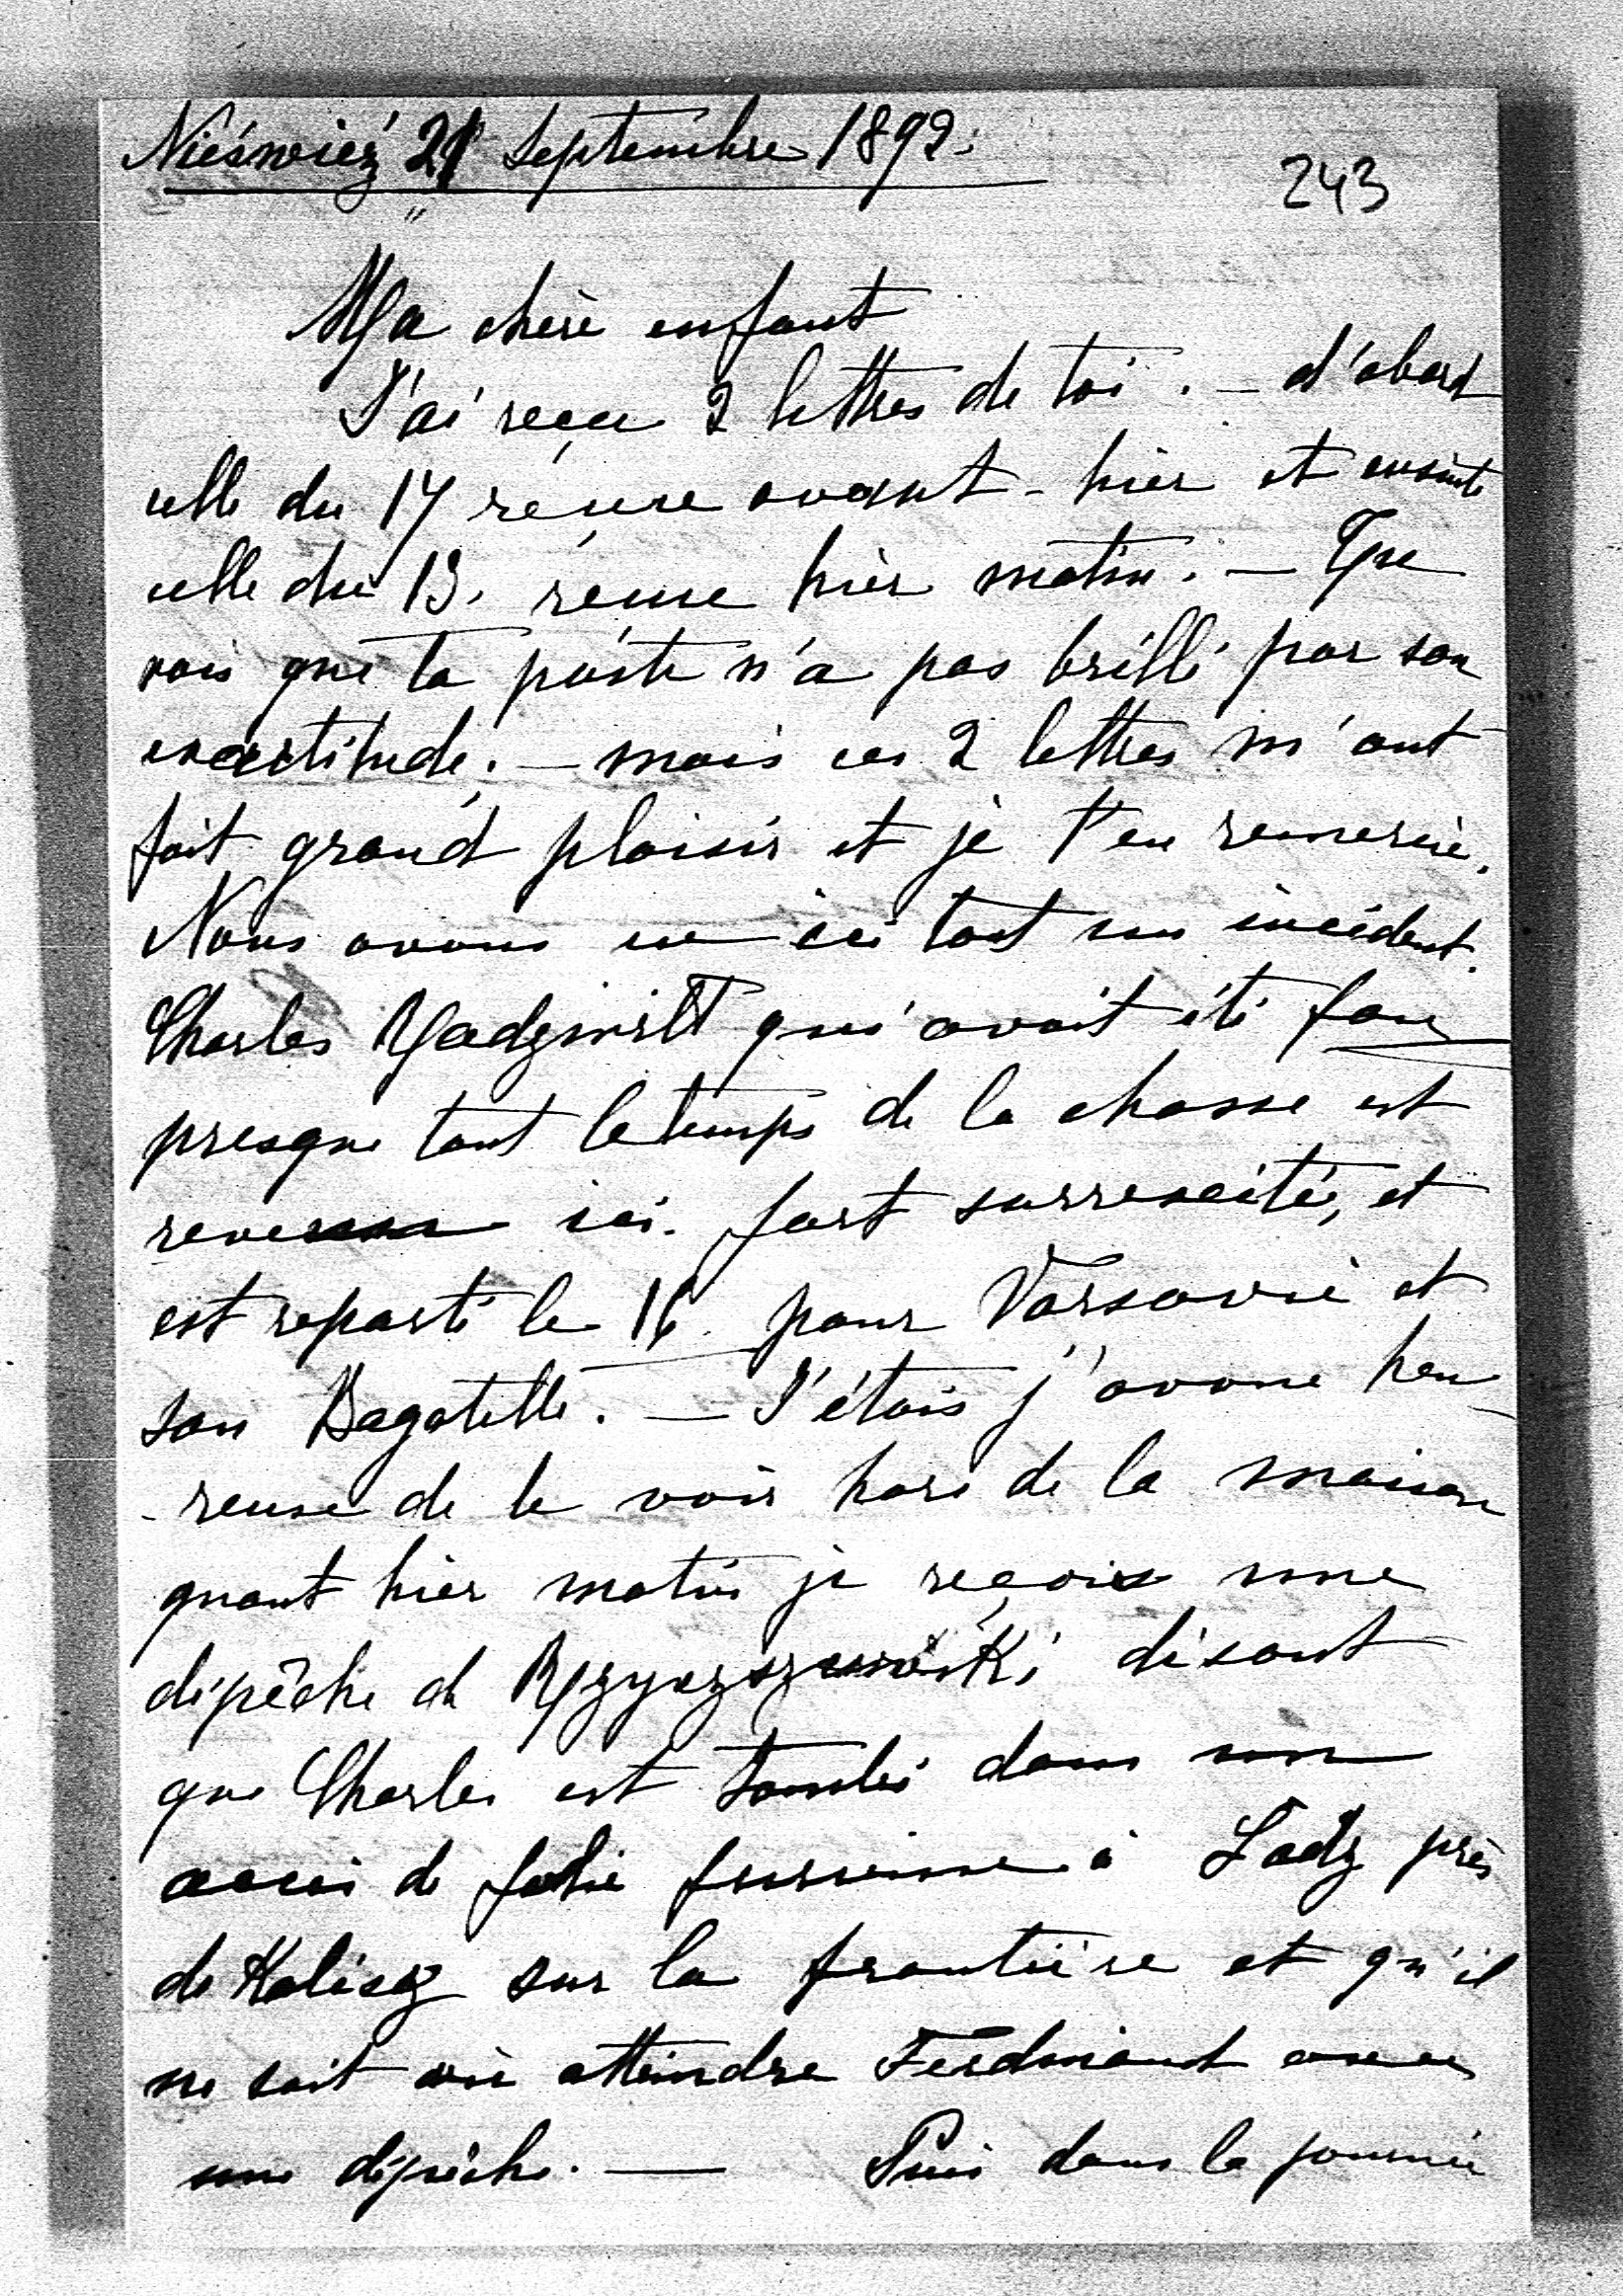 Nieświeź 21 Septembre 1899.
243
Ma chère enfant
J'ai reçu 2 lettres de toi. – d'abord
celle du 17 reçue avant-hier et ensuite
celle du 13. reçue hier matin. – Tu
vois que la poste n'a pas brillé par son
exactitude. – mais ces 2 lettres m'ont
fait grand plaisir et je t'en remercie.
Nous avons eu ici tout un incident.
Charles Radziwill qui avait été fou
presque tout le temps de la chasse est
revenu ici fort surrexcité, et
est reparti le 16 pour Varsovie et
son Bagatelle. – J'étais j'avoue heu-
-reuse de le voir hors de la maison
quant hier matin je reçois une
dépêche de disant
que Charles est tombé dans un
accès de folie furieuse à Lodz près
de Kalisz sur la frontière et qu'il
ne sait où atteindre Ferdinand avec
une dépêche. – Puis dans la journée